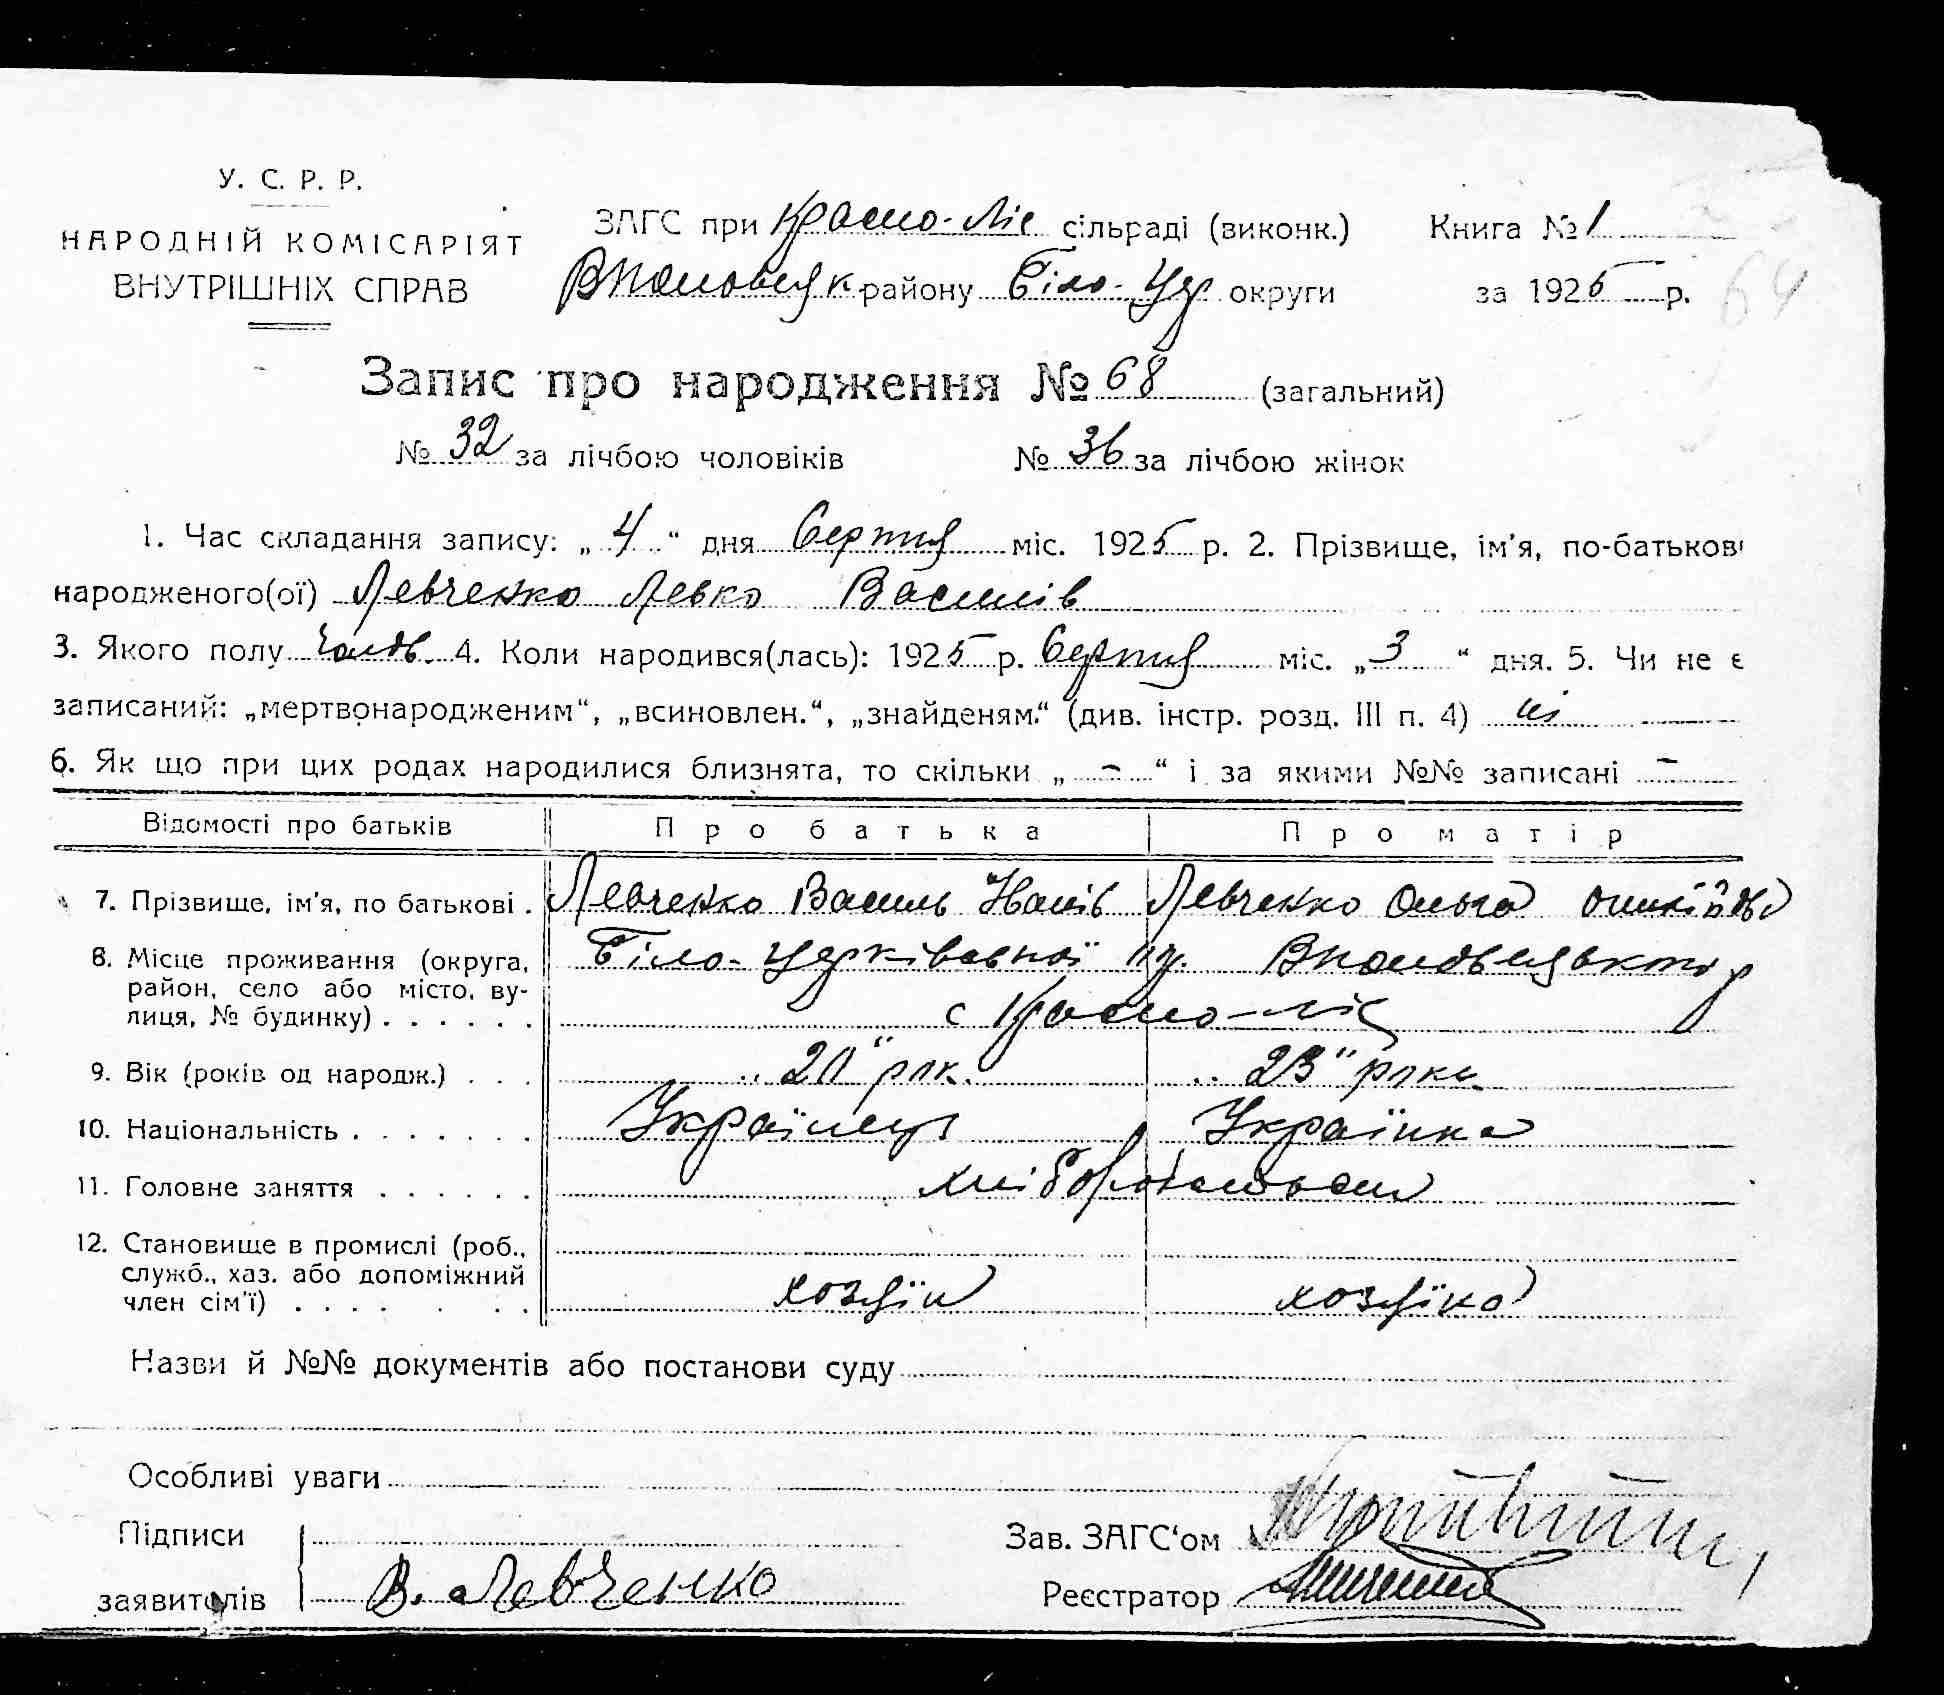 У. С. Р. Р.
НАРОДНІЙ КОМІСАРІЯТ
ВНУТРІШНІХ СПРАВ
ЗАГС при Красно-Ліс сільраді (виконк.) Книга № 1
району Біло-Цер округи за 1925 р.
64
Запис про народження № 68 (загальний)
№ 32 за лічбою чоловіків № 36 за лічбою жінок
1. Час складання запису: „4“ дня Серпня міс. 1925 р. 2. Прізвище, ім'я, по-батькові
народженого(ої) Левченко Левко Василів
3. Якого полу Чолов. 4. Коли народився(лась): 1925 р. Серпня міс. „3“ дня. 5. Чи не є
записаний: „мертвонародженим“, „всиновлен.“, „знайденям.“ (див. інстр. розд. III п. 4) ні
6. Як що при цих родах народилися близнята, то скільки „ - “ і за якими №№ записані -
Відомості про батьків Про батька Про матір
7. Прізвище, ім'я, по батькові . Левченко Василь Іванів Левченко Ольга
8. Місце проживання (округа, Біло-Церківської
район, село або місто, ву-
лиця, № будинку) . . . . . . с Красно-ліс
9. Вік (років од народж.) . . . рок. „23“ роки
10. Національність . . . . . . . Українец Українка
11. Головне заняття . . . . . .
12. Становище в промислі (роб.,
служб., хаз. або допоміжний
член сім'ї) . . . . . . . хозяїн хозяїка
Назви й №№ документів або постанови суду
Особливі уваги
Підписи
заявителів В. Левченко
Зав. ЗАГС'ом
Реєстратор